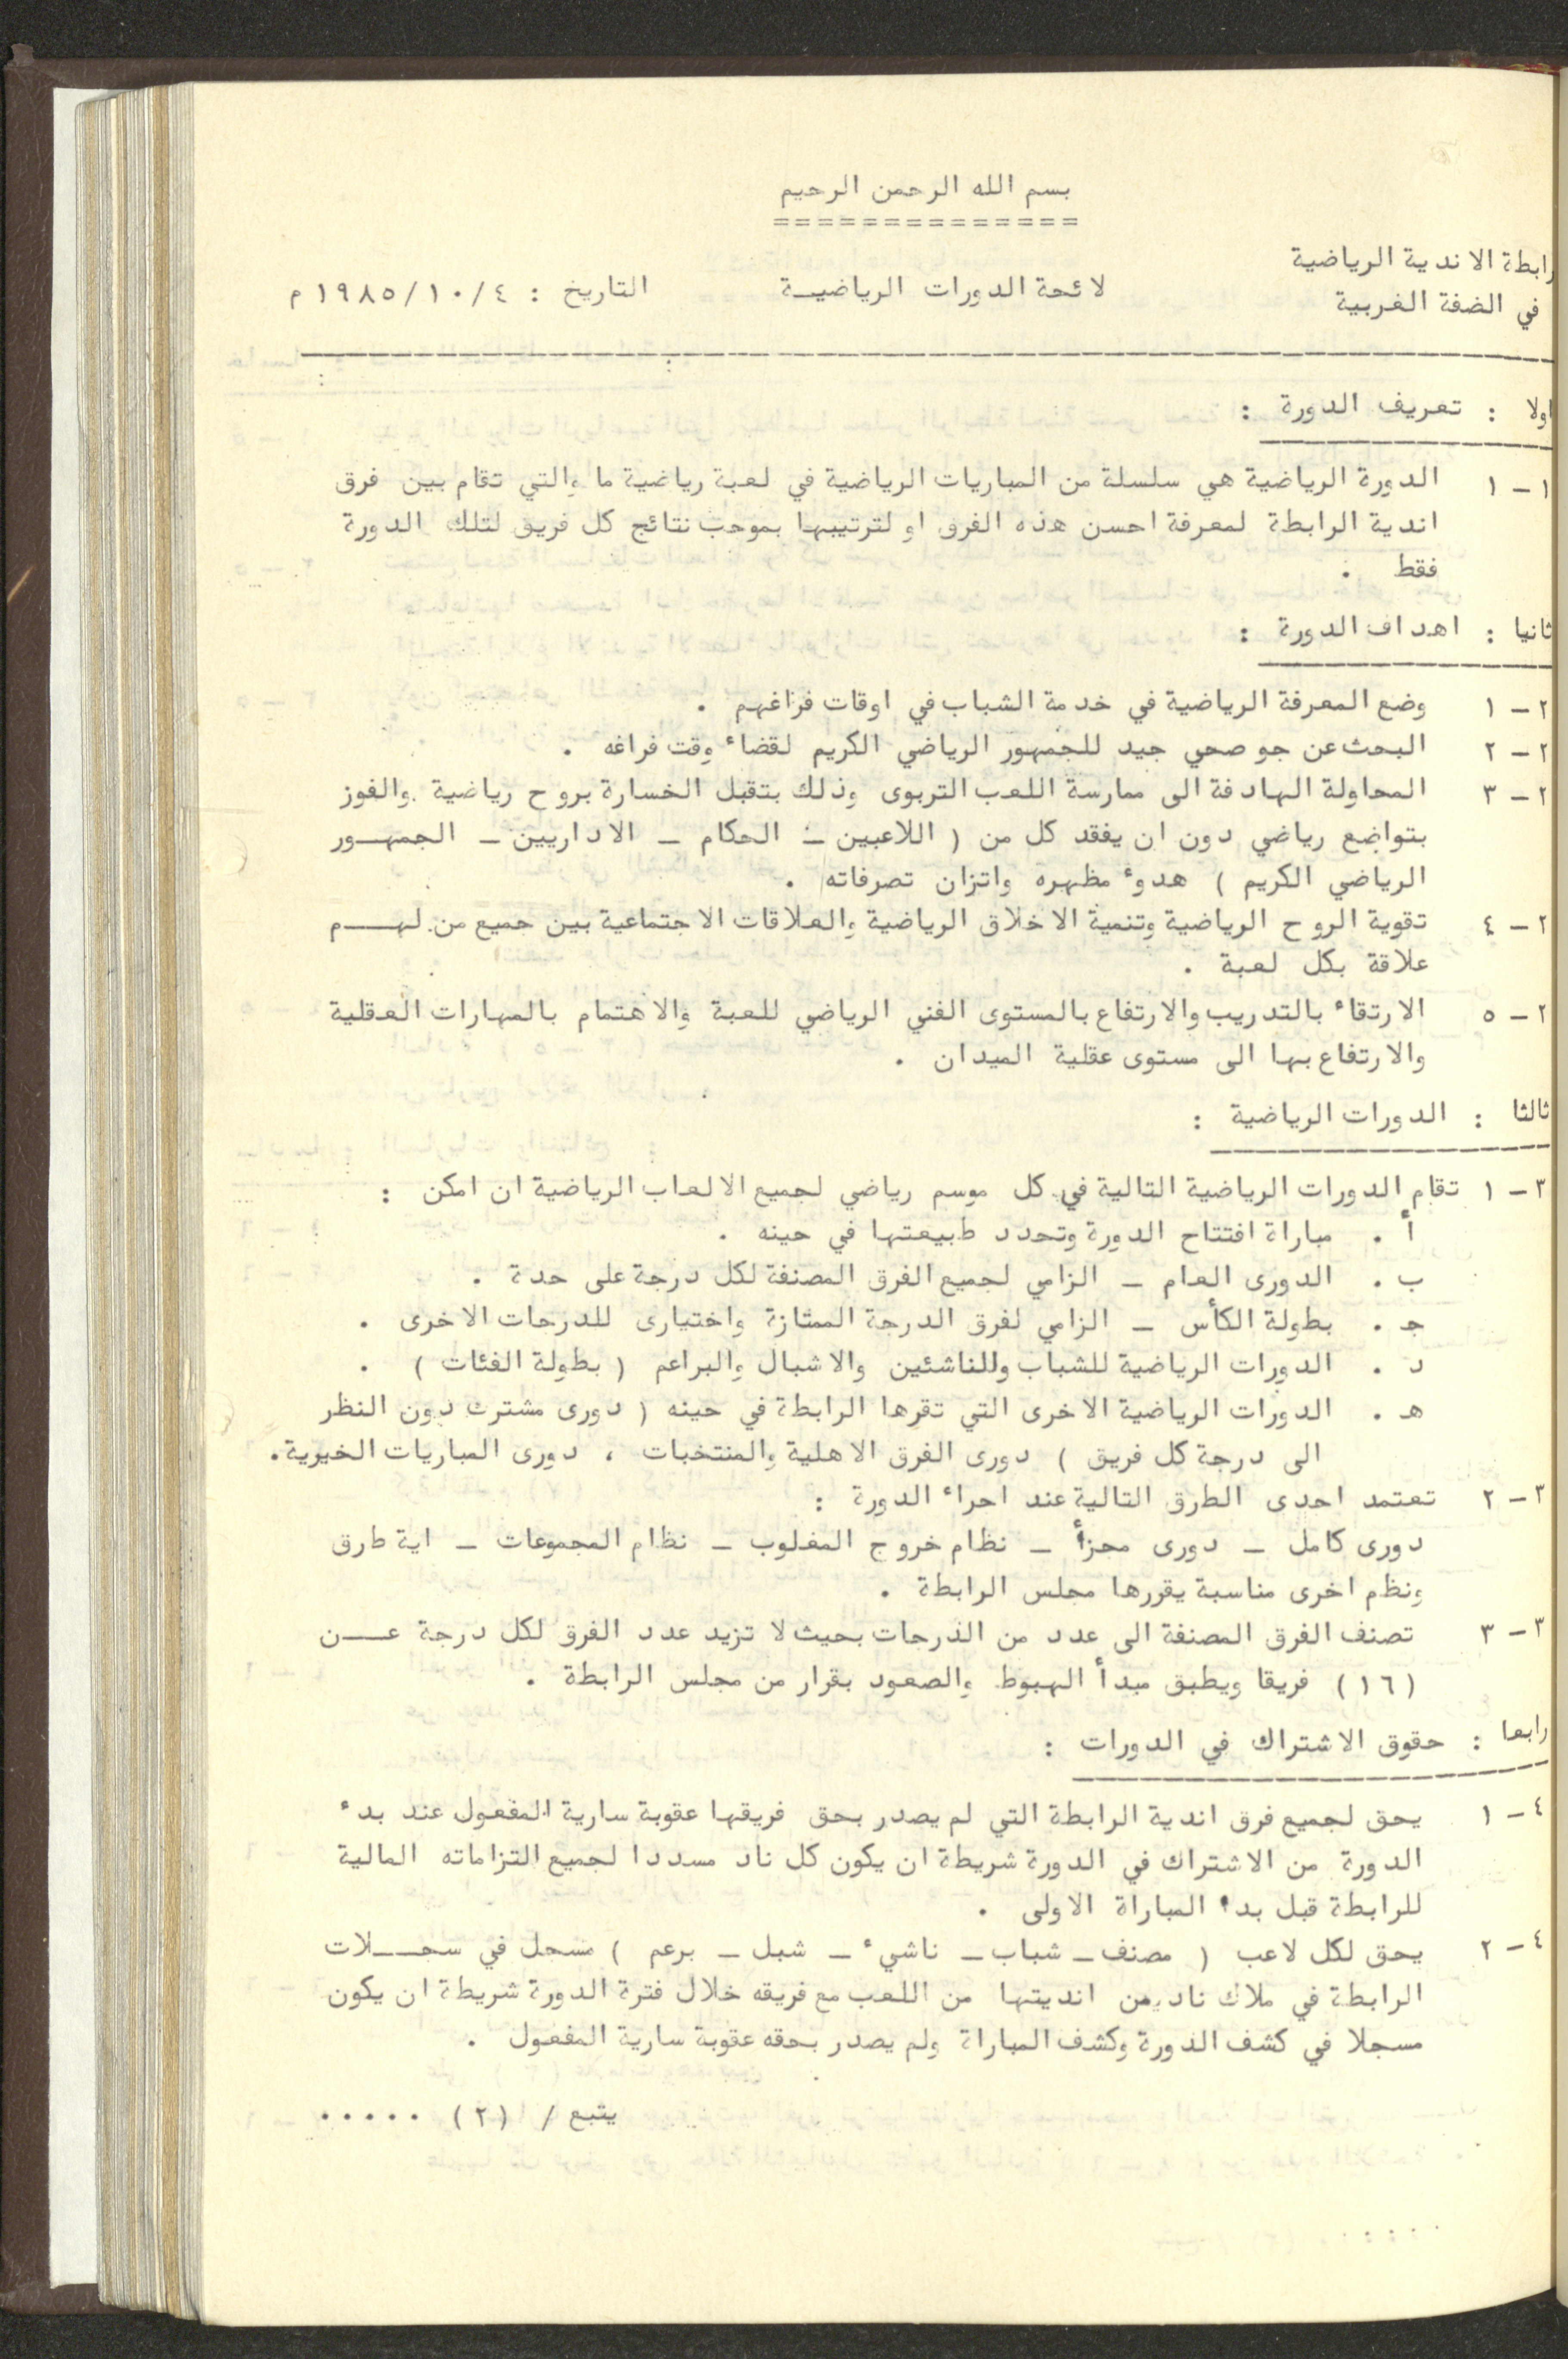 بسم الله الرحمن الرحيم
==============
رابطة الاندية الرياضية
في الضفة الغربية
لائحة الدورات الرياضيـة
التاريخ : ١٩٨٥/١٠/٤ م
اولا : تعريف الدورة :
١ - ١ الدورة الرياضية هي سلسلة من المباريات الرياضية في لعبة رياضية ما والتي تقام بين فرق
اندية الرابطة لمعرفة احسن هذه الفرق او لترتيبها بموجب نتائج كل فريق لتلك الدورة
فقط .
ثانيا : اهداف الدورة :
٢ - ١ وضع المعرفة الرياضية في خدمة الشباب في اوقات فراغهم .
٢ - ٢ البحث عن جو صحي جيد للجمهور الرياضي الكريم لقضاء وقت فراغه .
٢ - ٣ المحاولة الهادفة الى ممارسة اللعب التربوى وذلك بتقبل الخسارة بروح رياضية والفوز
بتواضع رياضي دون ان يفقد كل من ( اللاعبين - الحكام - الاداريين - الجمهـور
الرياضي الكريم ) هدوء مظهره واتزان تصرفاته .
٢ - ٤ تقوية الروح الرياضية وتنمية الاخلاق الرياضية والعلاقات الاجتماعية بين جميع من لهـم
علاقة بكل لعبة .
٢ - ٥ الارتقاء بالتدريب والارتفاع بالمستوى الفني الرياضي للعبة والاهتمام بالمهارات العقلية
والارتفاع بها الى مستوى عقلية الميدان .
ثالثا : الدورات الرياضية :
٣ - ١ تقام الدورات الرياضية التالية في كل موسم رياضي لجميع الالعاب الرياضية ان امكن :
أ . مباراة افتتاح الدورة وتحدد طبيعتها في حينه .
ب . الدورى العام - الزامي لجميع الفرق المصنفة لكل درجة على حدة .
جـ . بطولة الكأس - الزامي لفرق الدرجة الممتازة واختيارى للدرجات الاخرى .
د . الدورات الرياضية للشباب وللناشئين والاشبال والبراعم ( بطولة الفئات ) .
هـ . الدورات الرياضية الاخرى التي تقرها الرابطة في حينه ( دورى مشترك دون النظر
الى درجة كل فريق ) دورى الفرق الاهلية والمنتخبات ، دورى المباريات الخيرية .
٣ - ٢ تعتمد احدى الطرق التالية عند اجراء الدورة :
دورى كامل - دورى مجزأ - نظام خروج المغلوب - نظام المجموعات - اية طرق
ونظم اخرى مناسبة يقررها مجلس الرابطة .
٣ - ٣ تصنف الفرق المصنفة الى عدد من الدرجات بحيث لا تزيد عدد الفرق لكل درجة عـن
( ١٦ ) فريقا ويطبق مبدأ الهبوط والصعود بقرار من مجلس الرابطة .
رابعا : حقوق الاشتراك في الدورات :
٤ - ١ يحق لجميع فرق اندية الرابطة التي لم يصدر بحق فريقها عقوبة سارية المفعول عند بدء
الدورة من الاشتراك في الدورة شريطة ان يكون كل ناد مسددا لجميع التزاماته المالية
للرابطة قبل بدء المباراة الاولى .
٤ - ٢ يحق لكل لاعب ( مصنف - شباب - ناشيء - شبل - برعم ) مسجل في سجـلات
الرابطة في ملاك ناد من انديتها من اللعب مع فريقه خلال فترة الدورة شريطة ان يكون
مسجلا في كشف الدورة وكشف المباراة ولم يصدر بحقه عقوبة سارية المفعول .
يتبع / (٢) .....